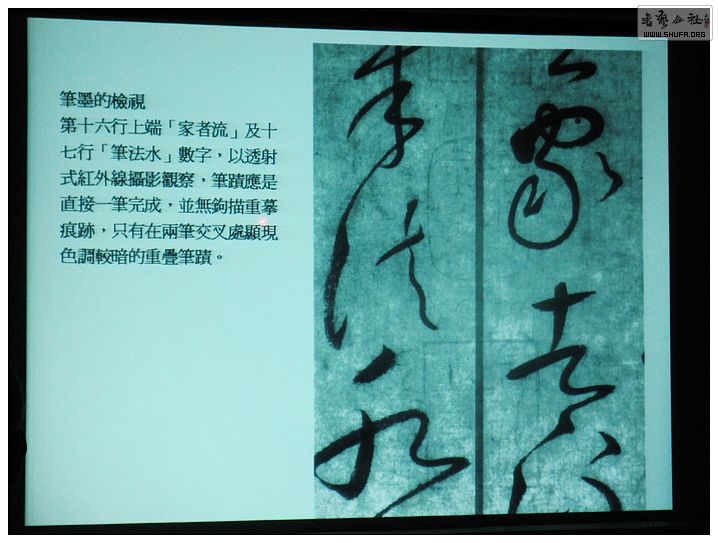 筆墨的檢視
第十六行上端「家者流」及十
七行「筆法水」數字，以透射
式紅外線攝影觀察，筆蹟應是
直接一筆完成，並無鉤描重摹
痕跡，只有在兩筆交叉處顯現
色調較暗的重疊筆蹟。
書藝公社
WWW.SHUFA.ORG